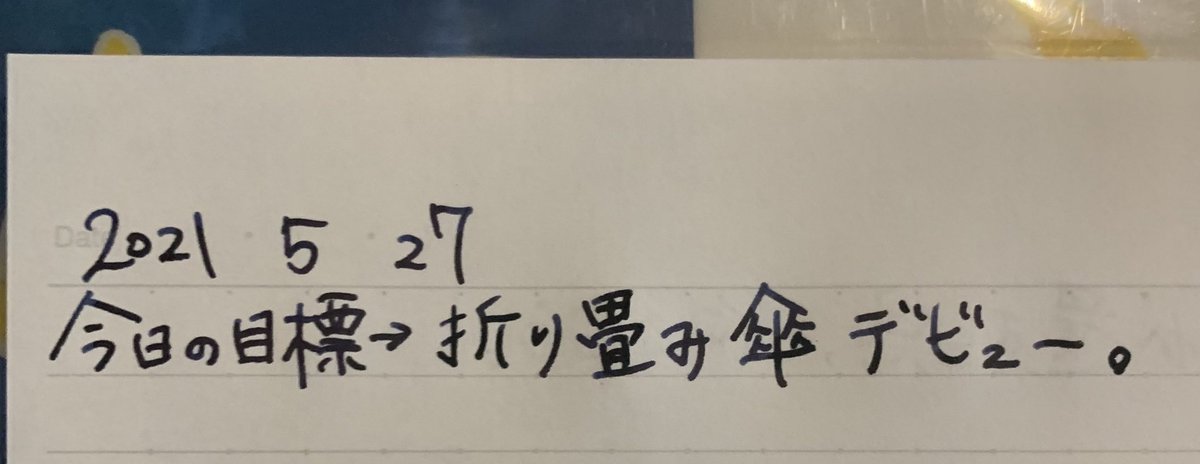 2021 5 27
今日の目標→折り畳み傘デビュー。